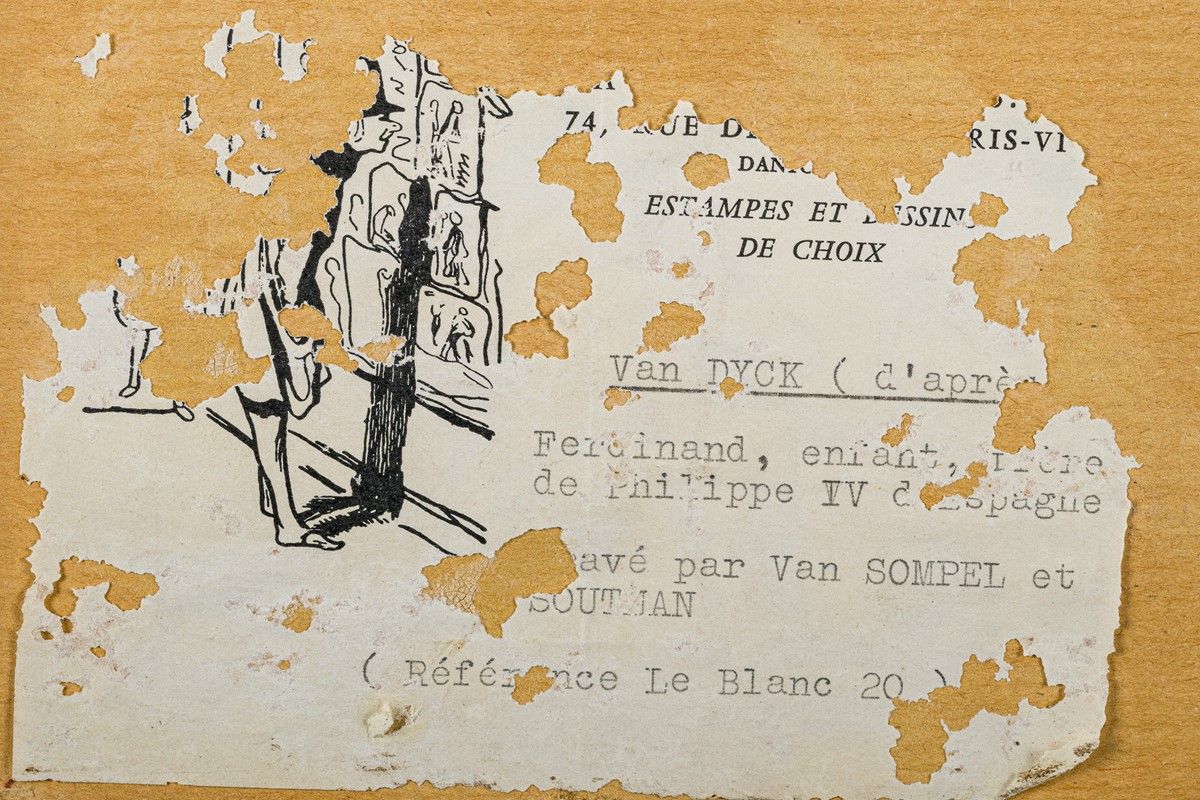 74, RUE DE
ESTAMPES ET DESSINS
DE CHOIX
Van DYCK ( d'après
Ferdinand, enfant, frère
de Philippe IV d'Espagne
Gravé par Van SOMPEL et
SOUTMAN
( Référence Le Blanc 20 )